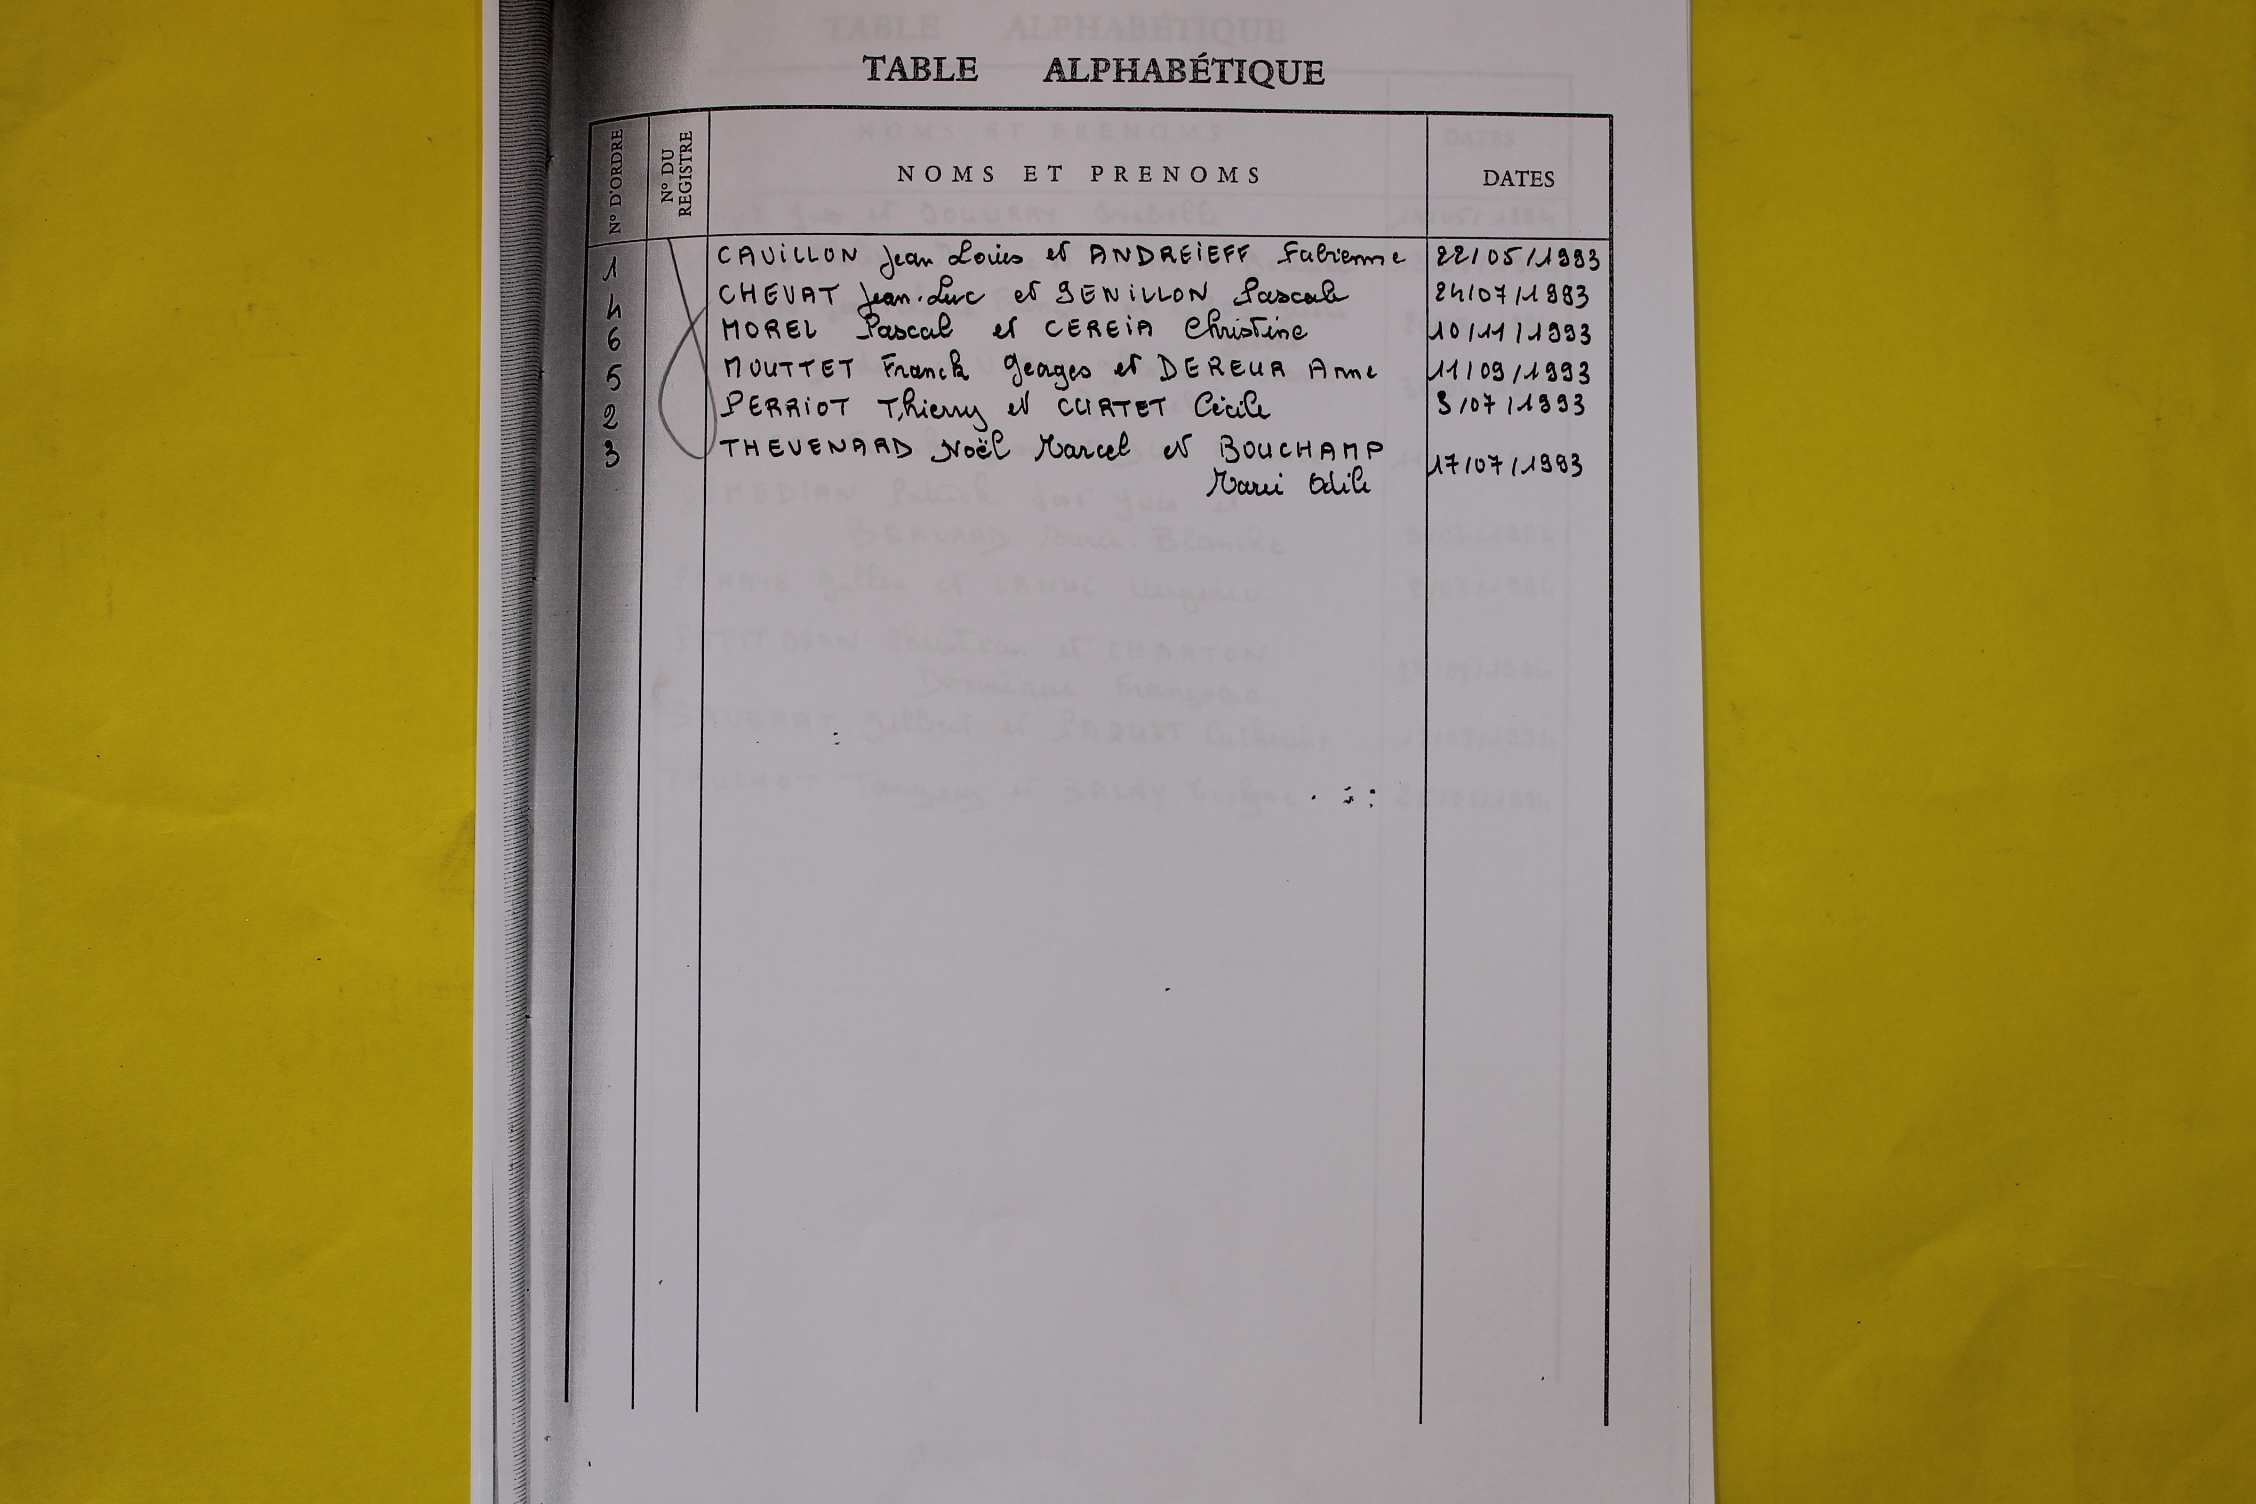 TABLE ALPHABÉTIQUE
N° D'ORDRE N° DU REGISTRE NOMS ET PRENOMS DATES
1 CAVILLON Jean Louis et ANDREIEFF Fabienne 22/05/1993
4 CHEVAT Jean-Luc et GENILLON Pascale 24/07/1993
6 MOREL Pascal et CEREIA Christine 10/11/1993
5 MOUTTET Franck Georges et DEREUR Anne 11/09/1993
2 PERRIOT Thierry et CURTET Cécile 3/07/1993
3 THEVENARD Noël Marcel et BOUCHAMP
Marie Odile 17/07/1993